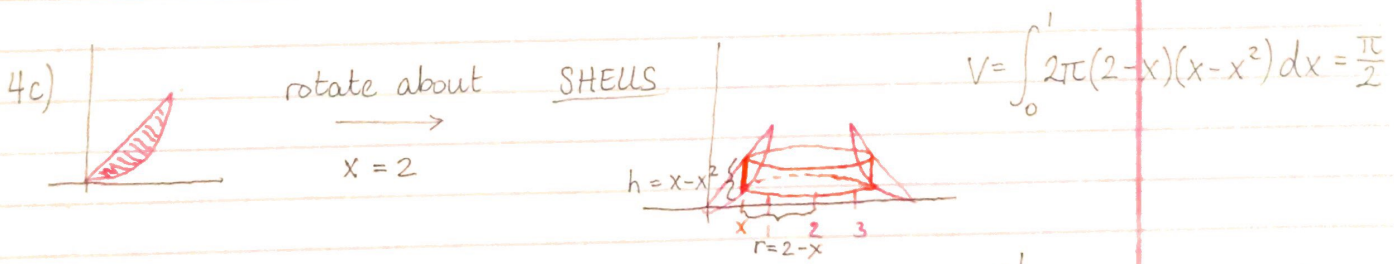 4c)
rotate about
x = 2
SHELLS
h = x-x²
x 1 2 3
r=2-x
V= ∫₀¹ 2π(2-x)(x-x²) dx = π/2